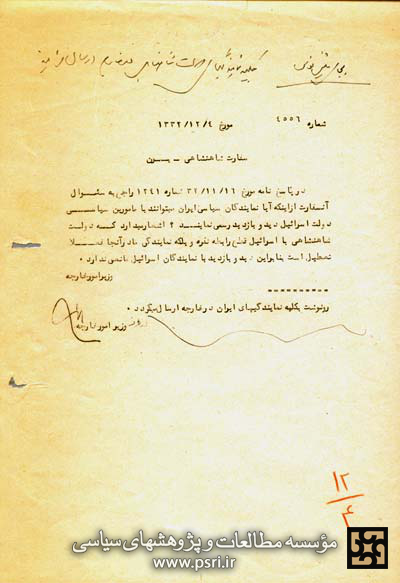 شماره ۴۵۵۶ مورخ ۱۳۳۲/۱۲/۴
سفارت شاهنشاهی - بن
در پاسخ نامه مورخ ۳۲/۱۱/۱۶ شماره ۱۲۴۱ راجع به سئوال
آنسفارت از اینکه آیا نمایندگان سیاسی ایران میتوانند با مامورین سیاسی
دولت اسرائیل دید و بازدید رسمی نمایند ؟ اشعار میدارد که دولت
شاهنشاهی با اسرائیل قطع رابطه نکرده بلکه نمایندگی ما در آنجا فعلا
تعطیل است بنابراین دید و بازدید با نمایندگان اسرائیل مانعی ندارد .
وزیر امور خارجه
رونوشت بکلیه نمایندگیهای ایران در خارجه ارسال میگردد .
از طرف وزیر امور خارجه
۱۲
۴
مؤسسه مطالعات و پژوهشهای سیاسی
www.psri.ir